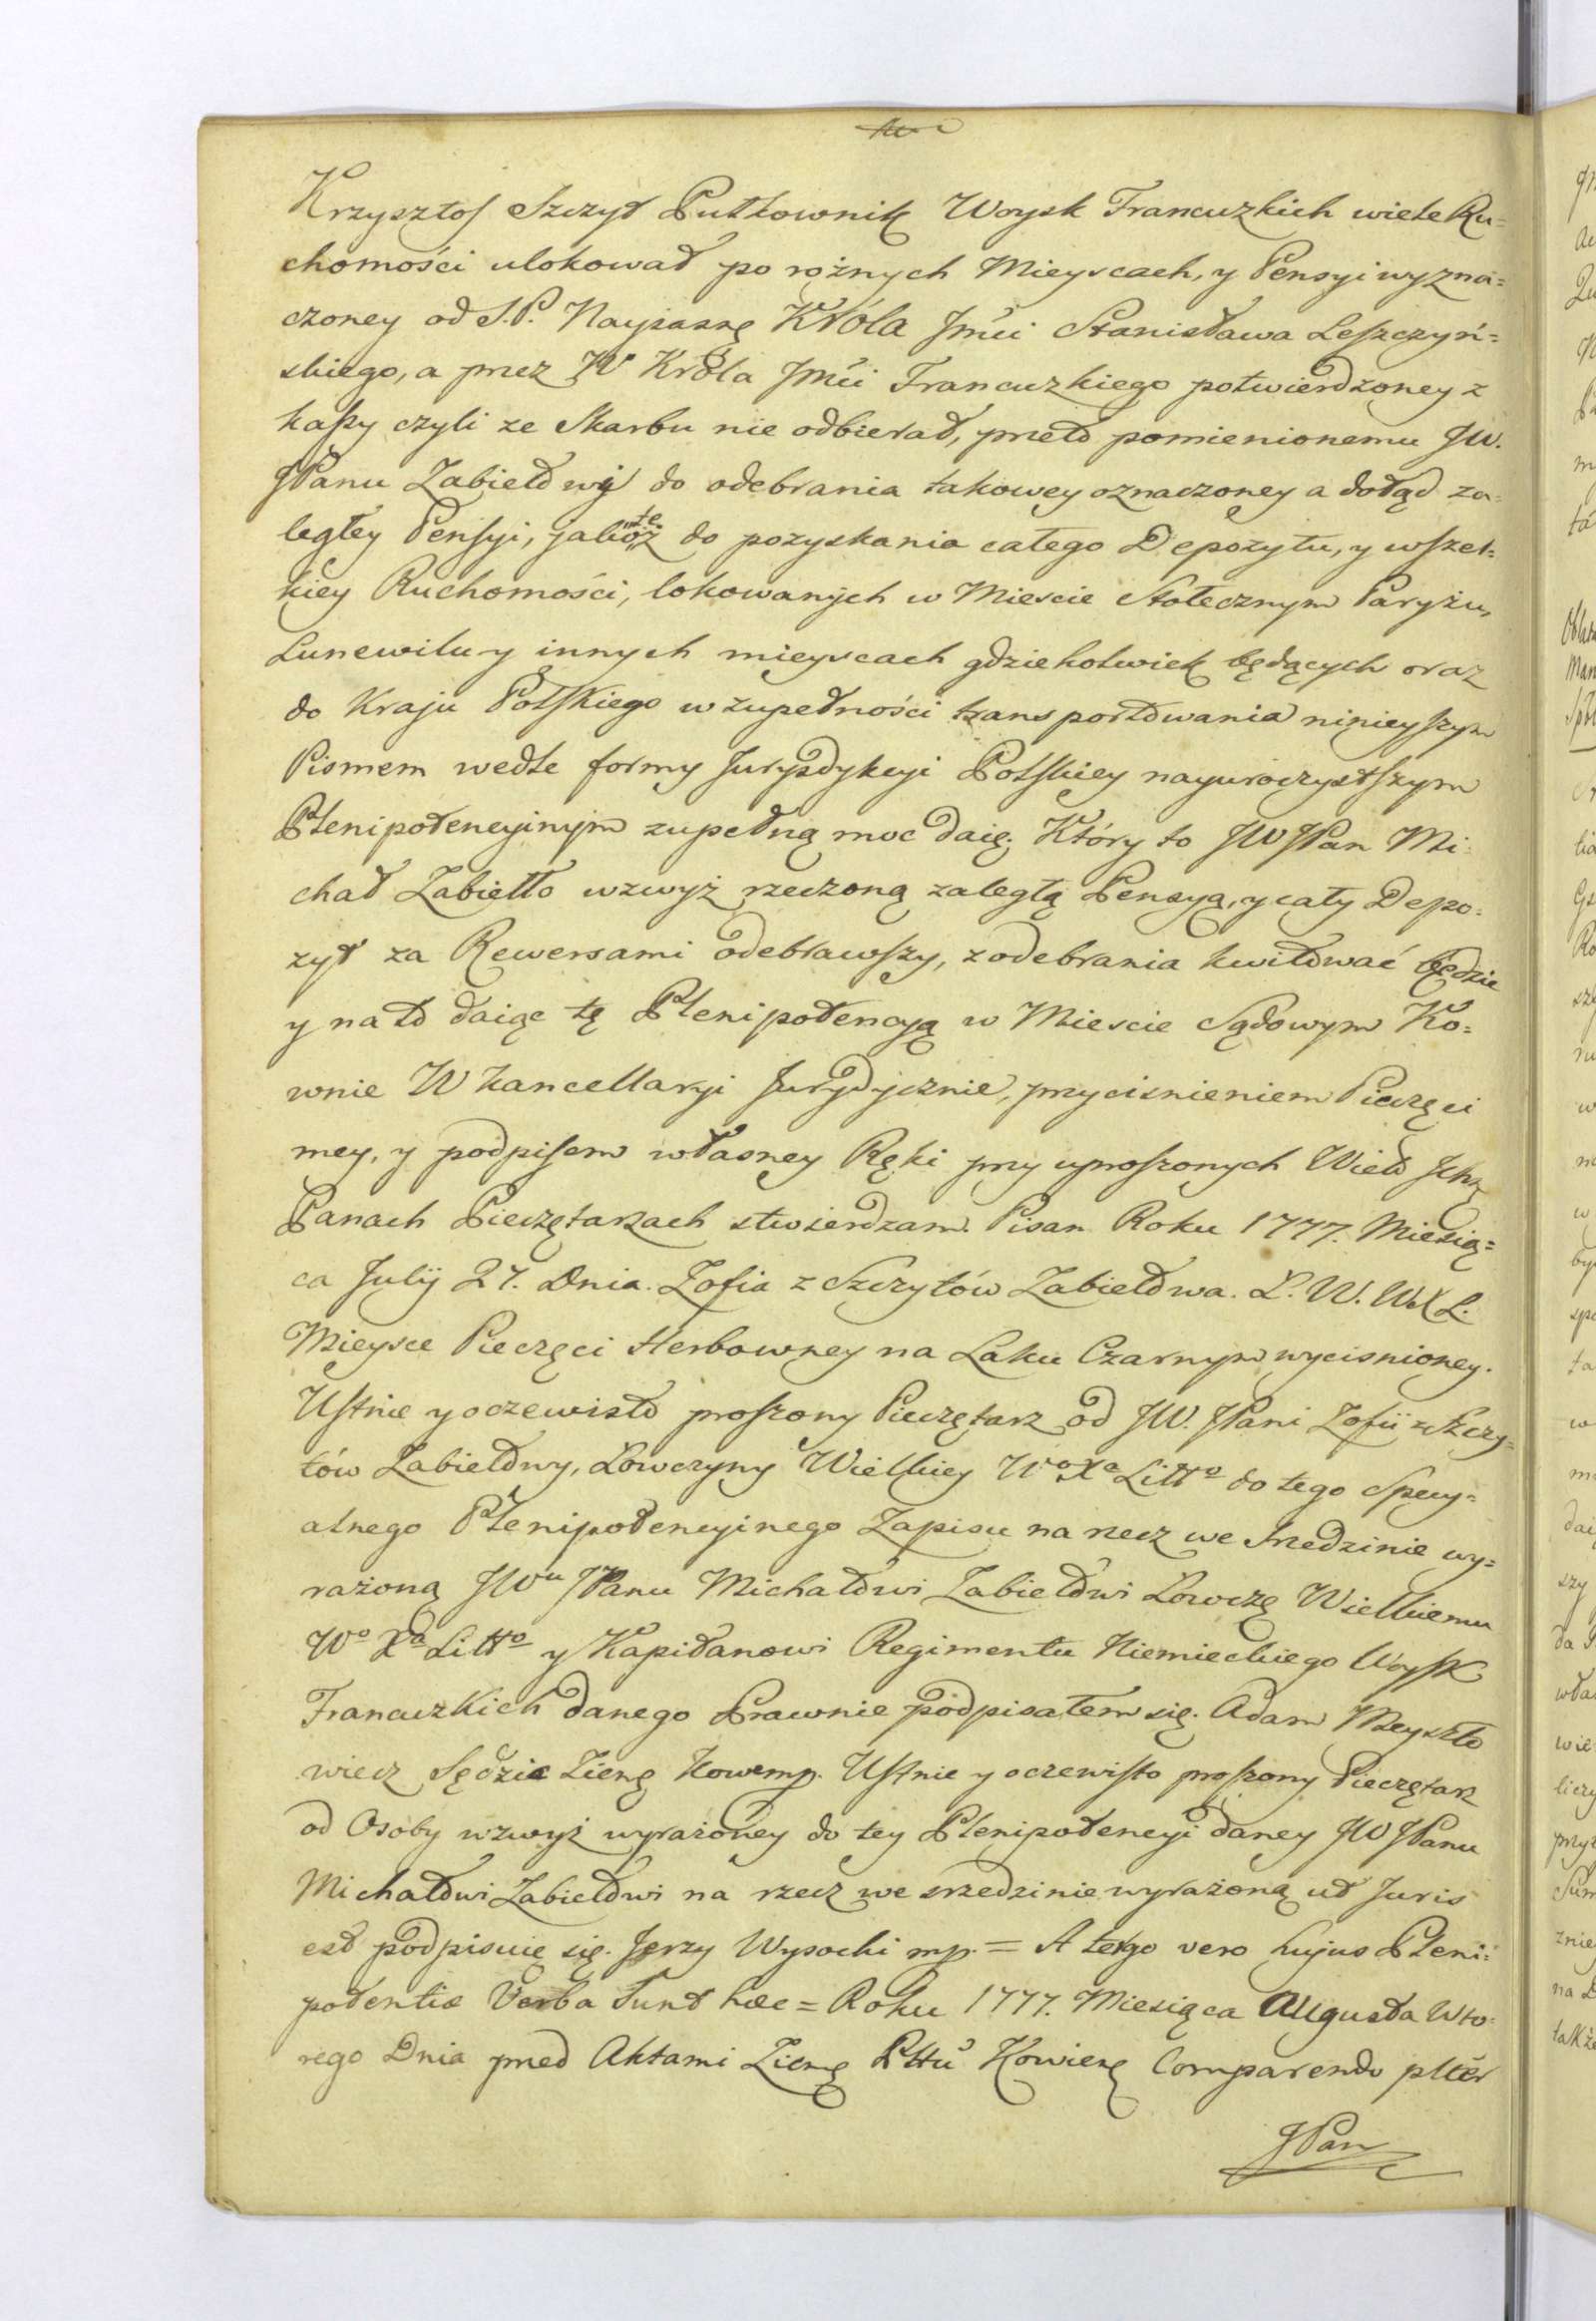 Krzysztof Szczyt Pułkownik Woysk Francuzkich wiele Ru=
chomości ulokował po rożnych Mieyscach, y Pensyi wyzna=
czoney od S.P. Nayiaśnę Króla Jmći Stanisława Leszczyń=
skiego, a przez N Króla Jmći Francuzkiego potwierdzoney z
kassy czyli ze Skarbu nie odbierał, przeto pomienionemu JW.
JPanu Zabiełowi do odebrania takowey oznaczoney a dotąd za=
ległey Pensyi, jako też do pozyskania całego Depozytu, y wszel=
kiey Ruchomości, lokowanych w Mieście Stołecznym Paryżu,
Lunewilu y innych mieyscach gdziekolwiek będących oraz
do Kraju Polskiego w zupełności transportowania ninieyszym
Pismem wedle formy Jurysdykcyi Polskiey nayuroczystszym
Plenipotencyinym zupełną moc daię. Który to JW JPan Mi=
chał Zabiełło wzwyż rzeczoną zaległą Pensyą, y cały Depo=
zyt za Rewersami odebrawszy, z odebrania kwitować będzie
y na to daiąc tę Plenipotencyą w Mieście Sądowym Ko=
wnie W Kancellaryi Jurydycznie, przyciśnieniem Pieczęci
mey, y podpisem własney Ręki przy uproszonych Wielo Ichę
Panach Pieczętarzach stwierdzam. Pisan Roku 1777. Miesią=
ca Julij 27. Dnia. Zofia z Szczytów Zabiełowa. Ł. W. W. X L.
Mieysce Pieczęci Herbowney na Laku Czarnym wyciśnioney.
Ustnie y oczewisto proszony Pieczętarz od JW. JPani Zofii z Szczy=
tów Zabiełowy, Łowczyny Wielkiey Wo Xa Litto do tego Specy=
alnego Plenipotencyinego Zapisu na rzecz we Srzedzinie wy=
rażoną JWu JPanu Michałowi Zabiełowi Łowczę Wielkiemu
Wo Xa Litto y Kapitanowi Regimentu Niemieckiego Woysk
Francuzkich danego Prawnie podpisałem się. Adam Meyszto
wicz Sędzia Ziemę Kow mp. Ustnie y oczewisto proszony Pieczętarz
od Osoby wzwyż wyrażoney do tey Plenipotencyi daney JW JPanu
Michałowi Zabiełowi na rzecz we srzedzinie wyrażoną ut Juris
est podpisuię się. Jerzy Wysocki mp. = A tergo vero hujus Pleni=
potentiæ Verba Sunt hæc = Roku 1777. Miesiąca Augusta Wto=
rego Dnia przed Aktami Ziemę Pttu Kowieńę Comparendo pltèr
JPan